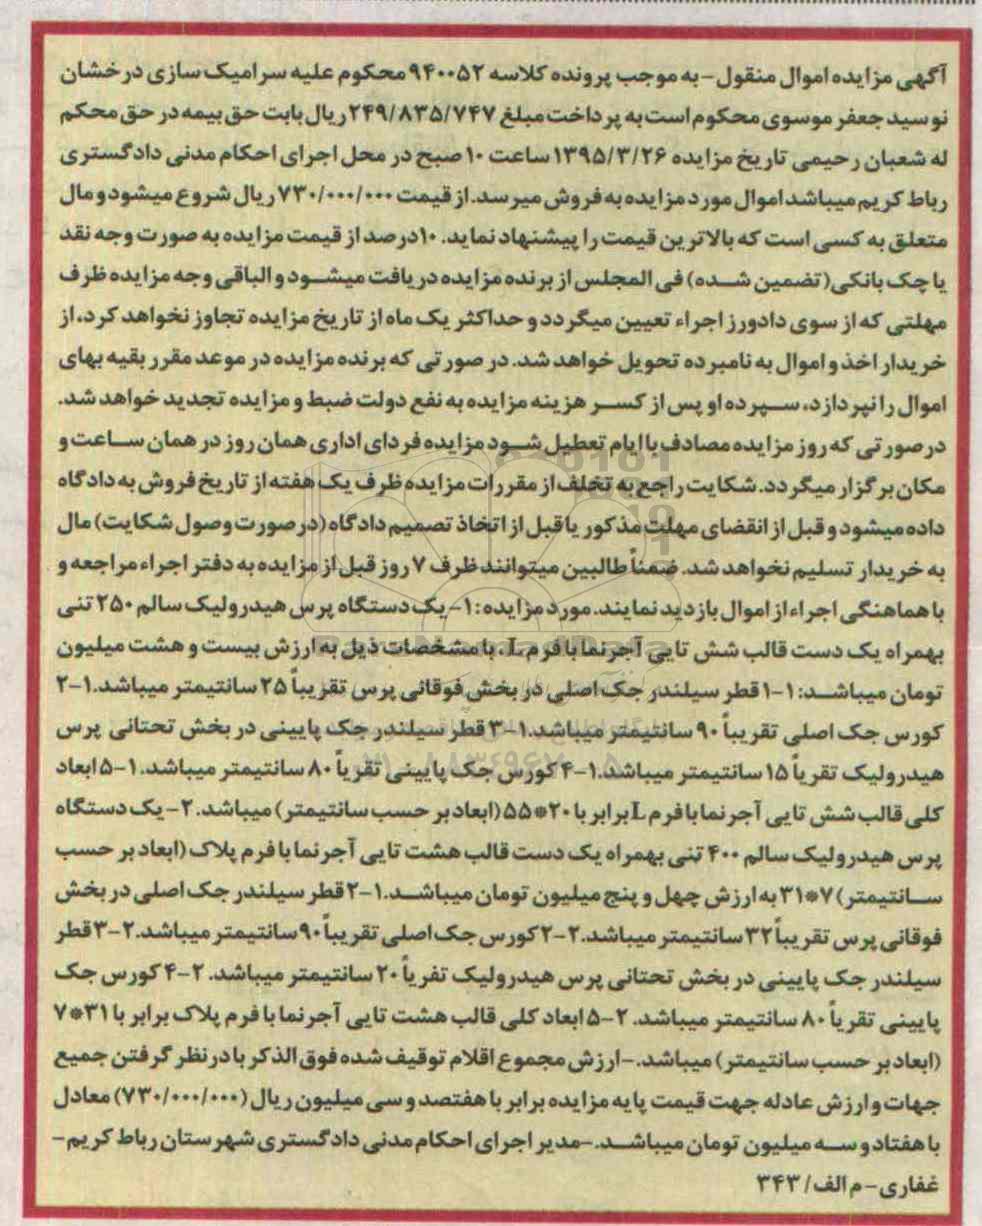 آگهی مزایده اموال منقول - به موجب پرونده کلاسه ۹۴۰۰۵۲ محکوم علیه سرامیک سازی درخشان
نو سید جعفر موسوی محکوم است به پرداخت مبلغ ۲۴۹/۸۳۵/۷۴۷ ریال بابت حق بیمه در حق محکم
له شعبان رحیمی تاریخ مزایده ۱۳۹۵/۳/۲۶ ساعت ۱۰ صبح در محل اجرای احکام مدنی دادگستری
رباط کریم میباشد اموال مورد مزایده به فروش میرسد. از قیمت ۷۳۰/۰۰۰/۰۰۰ ریال شروع میشود و مال
متعلق به کسی است که بالاترین قیمت را پیشنهاد نماید. ۱۰درصد از قیمت مزایده به صورت وجه نقد
یا چک بانکی( تضمین شده) فی المجلس از برنده مزایده دریافت میشود و الباقی وجه مزایده ظرف
مهلتی که از سوی دادورز اجراء تعیین میگردد و حداکثر یک ماه از تاریخ مزایده تجاوز نخواهد کرد، از
خریدار اخذ و اموال به نامبرده تحویل خواهد شد. در صورتی که برنده مزایده در موعد مقرر بقیه بهای
اموال را نپردازد، سپرده او پس از کسر هزینه مزایده به نفع دولت ضبط و مزایده تجدید خواهد شد.
درصورتی که روز مزایده مصادف با ایام تعطیل شود مزایده فردای اداری همان روز در همان ساعت و
مکان برگزار میگردد. شکایت راجع به تخلف از مقررات مزایده ظرف یک هفته از تاریخ فروش به دادگاه
داده میشود و قبل از انقضای مهلت مذکور یا قبل از اتخاذ تصمیم دادگاه (درصورت وصول شکایت) مال
به خریدار تسلیم نخواهد شد. ضمناً طالبین میتوانند ظرف ۷ روز قبل از مزایده به دفتر اجراء مراجعه و
با هماهنگی اجراء از اموال بازدید نمایند. مورد مزایده: ۱- یک دستگاه پرس هیدرولیک سالم ۲۵۰ تنی
بهمراه یک دست قالب شش تایی آجرنما با فرم L، با مشخصات ذیل به ارزش بیست و هشت میلیون
تومان میباشد: ۱-۱ قطر سیلندر جک اصلی در بخش فوقانی پرس تقریباً ۲۵ سانتیمتر میباشد.۱-۲
کورس جک اصلی تقریباً ۹۰ سانتیمتر میباشد.۱-۳ قطر سیلندر جک پایینی در بخش تحتانی پرس
هیدرولیک تقریاً ۱۵ سانتیمتر میباشد.۱-۴ کورس جک پایینی تقریاً ۸۰ سانتیمتر میباشد.۱-۵ ابعاد
کلی قالب شش تایی آجرنما با فرم L برابر با ۲۰*۵۵ (ابعاد بر حسب سانتیمتر) میباشد. ۲- یک دستگاه
پرس هیدرولیک سالم ۴۰۰ تنی بهمراه یک دست قالب هشت تایی آجرنما با فرم پلاک (ابعاد بر حسب
سانتیمتر) ۷*۳۱ به ارزش چهل و پنج میلیون تومان میباشد.۱-۲ قطر سیلندر جک اصلی در بخش
فوقانی پرس تقریباً ۳۲ سانتیمتر میباشد.۲-۲ کورس جک اصلی تقریباً ۹۰ سانتیمتر میباشد.۲-۳ قطر
سیلندر جک پایینی در بخش تحتانی پرس هیدرولیک تفریاً ۲۰ سانتیمتر میباشد. ۲-۴ کورس جک
پایینی تقریاً ۸۰ سانتیمتر میباشد. ۲-۵ ابعاد کلی قالب هشت تایی آجرنما با فرم پلاک برابر با ۳۱*۷
(ابعاد بر حسب سانتیمتر) میباشد.-ارزش مجموع اقلام توقیف شده فوق الذکر با درنظر گرفتن جمیع
جهات و ارزش عادله جهت قیمت پایه مزایده برابر با هفتصد و سی میلیون ریال (۷۳۰/۰۰۰/۰۰۰) معادل
با هفتاد و سه میلیون تومان میباشد.-مدیر اجرای احکام مدنی دادگستری شهرستان رباط کریم-
غفاری- م الف/ ۳۴۳